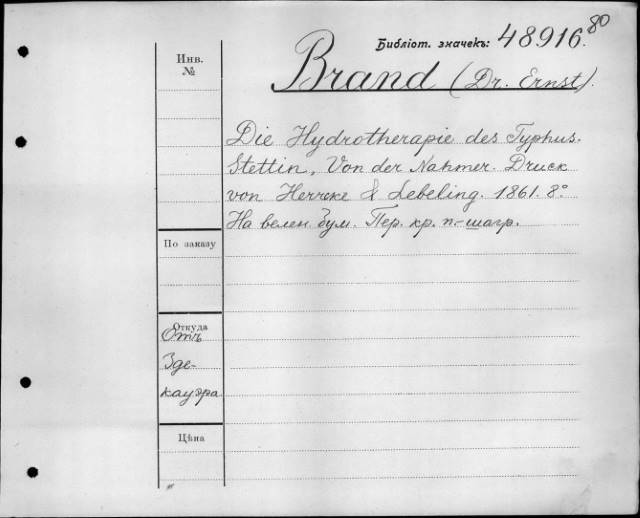 Библіот. значекъ: 48916.80
Инв.
№
Brand (Dr. Ernst).
Die Hydrotherapie des Typhus.
Stettin, Von der Nahmer. Druck
von Herrcke & Lebeling. 1861. 8°
На велен. бум. Пер. кр. п.-шагр.
По заказу
Откуда
Отъ
Зде-
кауэра
Цѣна